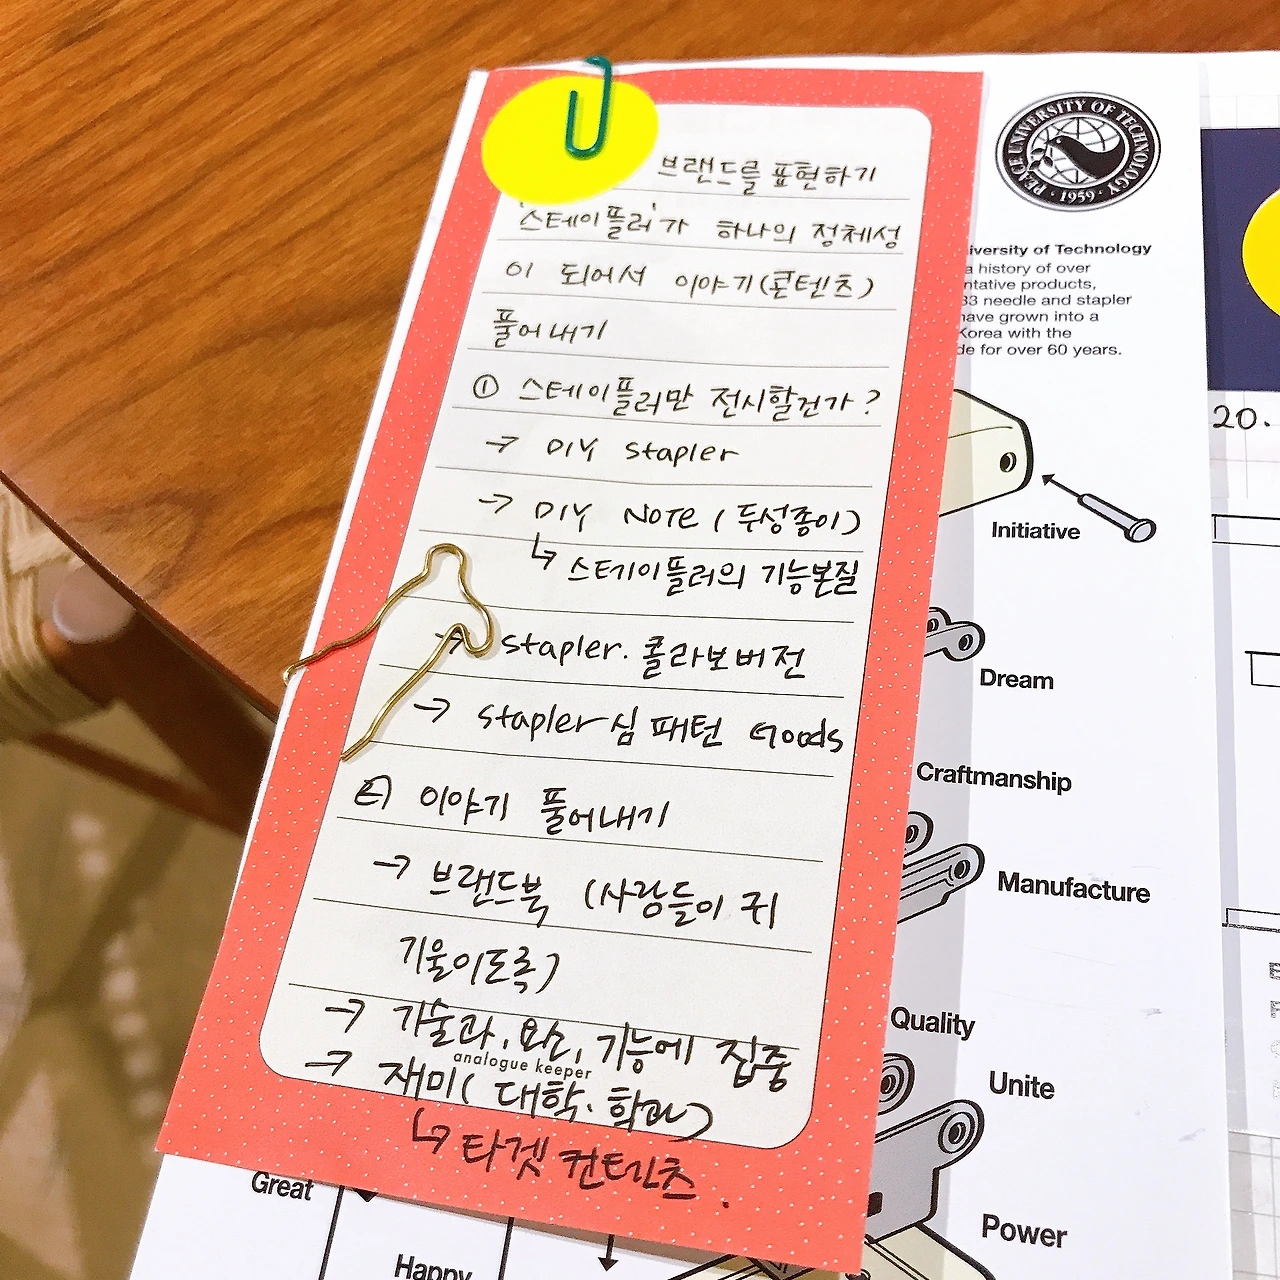 브랜드를 표현하기
'스테이플러'가 하나의 정체성
이 되어서 이야기(콘텐츠)
풀어내기
① 스테이플러만 전시할건가?
→ DIY stapler
→ DIY NOTE (두성종이)
↳ 스테이플러의 기능본질
→ stapler. 콜라보버전
→ stapler심 패턴 Goods
② 이야기 풀어내기
→ 브랜드북 (사람들이 귀
기울이도록)
→ 기술과, 요소, 기능에 집중
analogue keeper
→ 재미(대학. 학과)
↳ 타겟 컨텐츠.
PEACE UNIVERSITY OF TECHNOLOGY
· 1959 ·
iversity of Technology
a history of over
ntative products,
33 needle and stapler
have grown into a
Korea with the
de for over 60 years.
20.
Initiative
Dream
Craftmanship
Manufacture
Quality
Unite
Power
Great
Happy